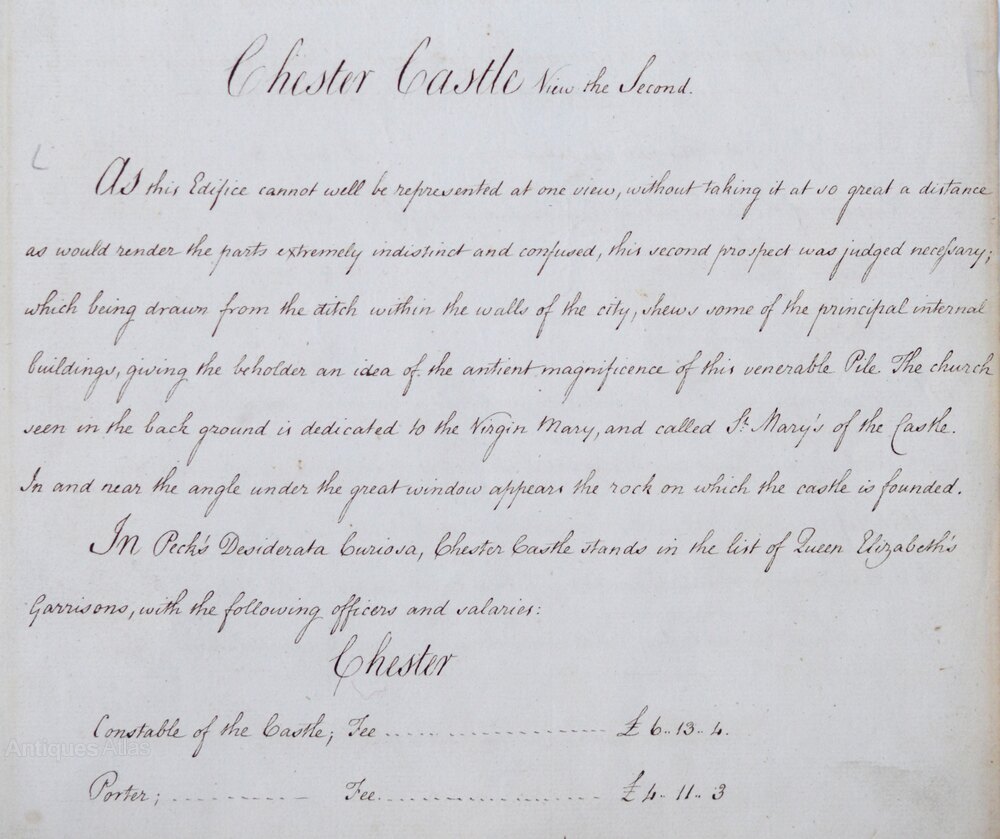 Chester Castle View the Second.
As this Edifice cannot well be represented at one view, without taking it at so great a distance
as would render the parts extremely indistinct and confused, this second prospect was judged neceſsary;
which being drawn from the ditch within the walls of the city, shews some of the principal internal
buildings, giving the beholder an idea of the antient magnificence of this venerable Pile. The church
seen in the back ground is dedicated to the Virgin Mary, and called St. Mary's of the Castle.
In and near the angle under the great window appears the rock on which the castle is founded.
In Peck's Desiderata Curiosa, Chester Castle stands in the list of Queen Elizabeth's
Garrisons, with the following officers and salaries:
Chester
Constable of the Castle; Fee ........................ £ 6.. 13.. 4.
Antiques Atlas
Porter; ................ Fee ........................ £ 4.. 11.. 3